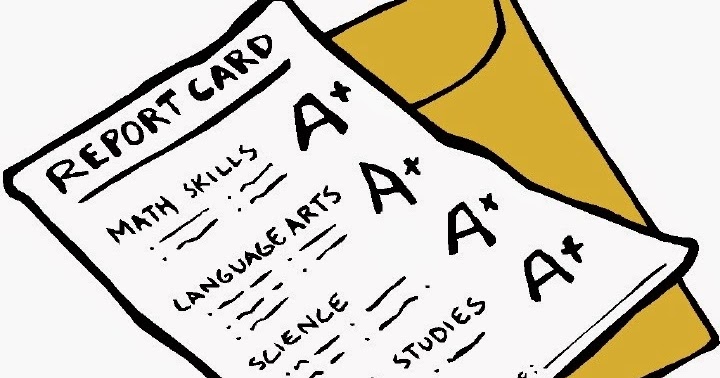 REPORT CARD
MATH SKILLS A+
LANGUAGE ARTS A+
SCIENCE A+
STUDIES A+